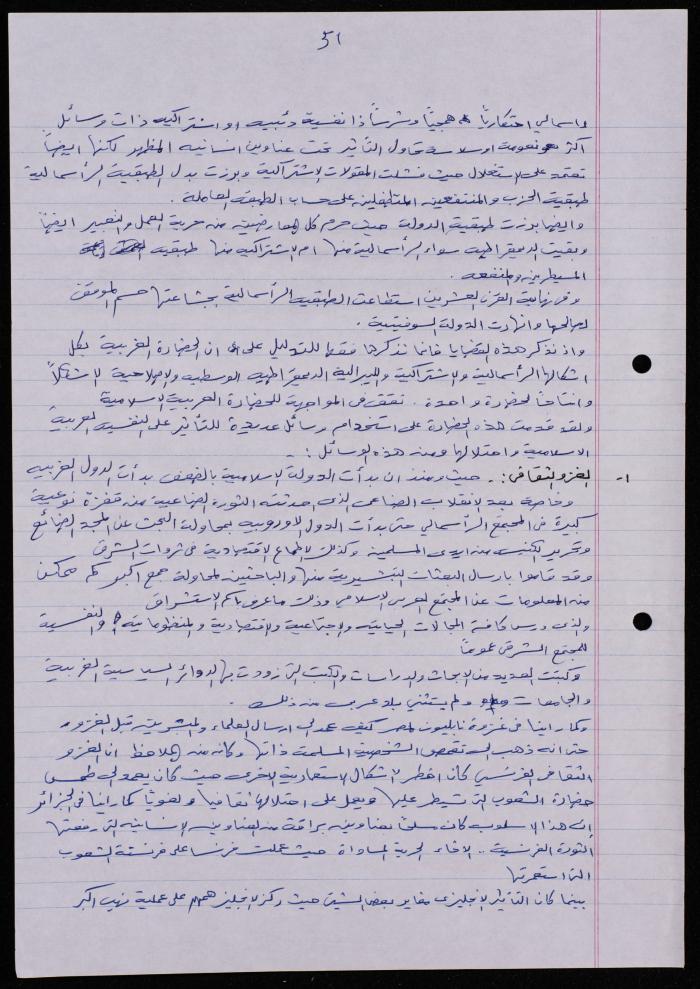 ٥١
رأسمالي احتكارياً همجياً وشرساً ذا نفسية ذئبية او اشتراكيه ذات وسائل
أكثر نعومة وسلاسة تحاول التأثير تحت عناوين انسانيه المظهر لكنها ايضاً
تعتمد على الاستغلال حيث فشلت المقولات الاشتراكية وبرزت بدل الطبقية الرأسمالية
طبقية الحزب والمنتفعين المتطفلين على حساب الطبقه العامله .
وايضا برزت طبقية الدولة حيث حرم كل المعارضين من حرية العمل والتعبير ايضاً
وبقيت الديمقراطيه سواء الرأسمالية منها ام الاشتراكيه منها طبقيه
المسيطرين والمنفعه .
وفي نهاية القرن العشرين استطاعت الطبقيه الرأسمالية بجشاعتها حسم الموقف
لصالحها وانهارت الدولة السوفيتية .
واذ نذكر هذه القضايا فانما نذكرها فقط للتدليل على ان الحضارة الغربية بكل
اشكالها الرأسمالية والاشتراكية والليبرالية الديمقراطيه الوسطيه والاصلاحية الاشكالاً
وانتاجاً لحضارة واحدة . تقف في المواجهة للحضارة العربية الاسلامية
ولقد قدمت هذه الحضارة على استخدام وسائل عديدة للتأثير على النفسيه العربية
الاسلامية واحتلالها ومن هذه الوسائل :
١- الغزو الثقافي :. حيث ومنذ ان بدأت الدولة الاسلامية بالضعف بدأت الدول الغربيه
وخاصة بعد الانقلاب الصناعي الذي احدثته الثورة الصناعية من قفزة نوعية
كبيرة في المجتمع الرأسمالي حتى بدأت الدول الاوروبيه بمحاولة البحث عن المجد الضائع
وتحرير الكنيسه من ايدي المسلمين وكذلك الاطماع الاقتصادية في ثروات الشرق
وقد قاموا بارسال البعثات التبشيرية منها والباحثين لمحاولة جمع اكبر كم ممكن
من المعلومات عن المجتمع العربي الاسلامي وذلك ما عرف باسم الاستشراق
والذي درس كافة المجالات الحياتيه والاجتماعية والاقتصادية والمنظوماتية والنفسية
للمجتمع الشرقي عموماً
وكتبت العديد من الابحاث والدراسات والكتب التي زودت بها الدوائر السياسية الغربية
والجامعات ولم يستثنى بلد عربي من ذلك .
وكما رأينا في غزوة نابليون لمصر كيف عمد الى ارسال العلماء والمبشرين قبل الغزو
حتى انه ذهب الى تقمص الشخصية المسلمة ذاتها وكان من الملاحظ ان الغزو
الثقافي الفرنسي كان اخطر الاشكال الاستعمارية الاخرى حيث كان يعمد الى طمس
حضارة الشعوب التي تسيطر عليها ويعمل على احتلالها ثقافيا ولغوياً كما رأينا في الجزائر
ان هذا الاسلوب كان مسلحاً بعناوين براقة من العناوين الانسانية التي رفعتها
الثورة الفرنسية .. الاخاء الحرية المساواة حيث عملت فرنسا على فرنسة الشعوب
التي استعمرتها
بينما كان التأثير الانجليزي مغاير بعض الشيئ حيث ركز الانجليز همهم على عملية نهب اكبر